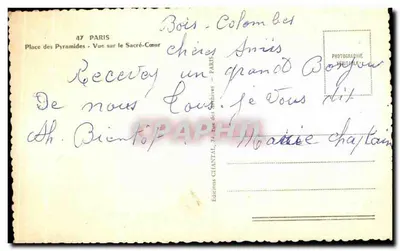 47 PARIS
Place des Pyramides - Vue sur le Sacré-Cœur
Bois-Colombes
chères Amis
Recevez un grand Bonjour
De nous Tous. je vous dit
Ah. Bientôt.
Marie
Editions CHANTAL, PARIS
PHOTOGRAPHIE